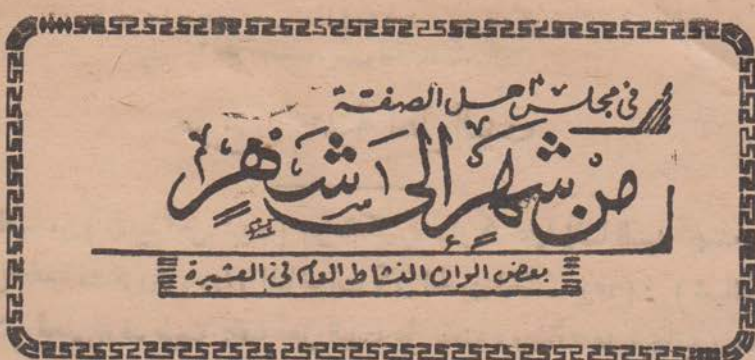 في مجلس أهل الصفة
من شهر إلى شهر
بعض ألوان النشاط العام في العشيرة